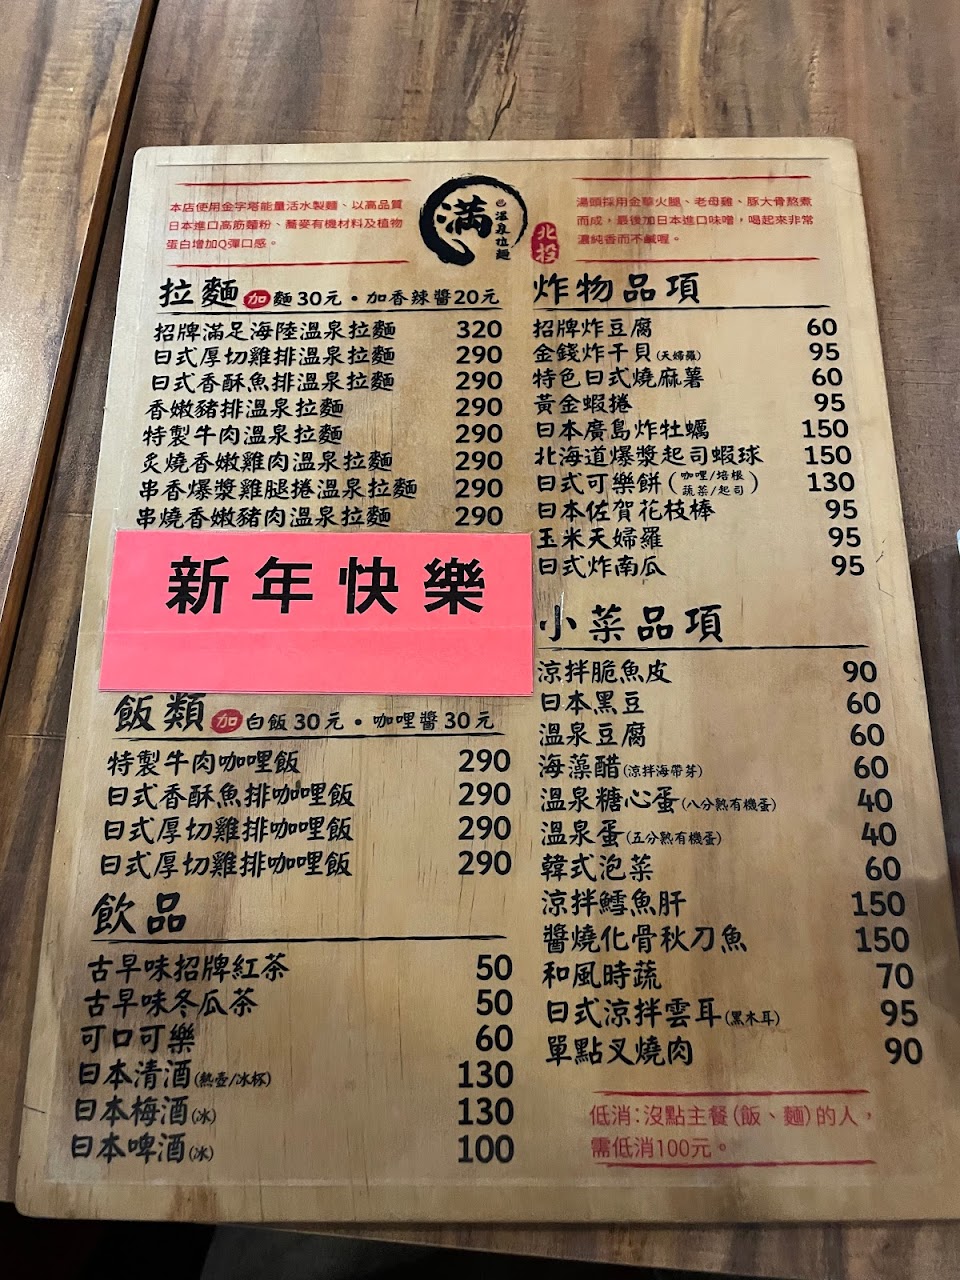 本店使用金字塔能量活水製麵、以高品質
日本進口高筋麵粉、蕎麥有機材料及植物
蛋白增加Q彈口感。
滿
溫泉拉麵
北投
湯頭採用金華火腿、老母雞、豚大骨熬煮
而成,最後加日本進口味噌,喝起來非常
濃純香而不鹹喔。
拉麵 加 麵30元・加香辣醬20元
招牌滿足海陸溫泉拉麵 320
日式厚切雞排溫泉拉麵 290
日式香酥魚排溫泉拉麵 290
香嫩豬排溫泉拉麵 290
特製牛肉溫泉拉麵 290
炙燒香嫩雞肉溫泉拉麵 290
串香爆漿雞腿捲溫泉拉麵 290
串燒香嫩豬肉溫泉拉麵 290
新年快樂
飯類 加 白飯30元・咖哩醬30元
特製牛肉咖哩飯 290
日式香酥魚排咖哩飯 290
日式厚切雞排咖哩飯 290
日式厚切雞排咖哩飯 290
飲品
古早味招牌紅茶 50
古早味冬瓜茶 50
可口可樂 60
日本清酒(熱壺/冰杯) 130
日本梅酒(冰) 130
日本啤酒(冰) 100
炸物品項
招牌炸豆腐 60
金錢炸干貝(天婦羅) 95
特色日式燒麻薯 60
黃金蝦捲 95
日本廣島炸牡蠣 150
北海道爆漿起司蝦球 150
日式可樂餅(咖哩/培根 蔬菜/起司) 130
日本佐賀花枝棒 95
玉米天婦羅 95
日式炸南瓜 95
小菜品項
涼拌脆魚皮 90
日本黑豆 60
溫泉豆腐 60
海藻醋(涼拌海帶芽) 60
溫泉糖心蛋(八分熟有機蛋) 40
溫泉蛋(五分熟有機蛋) 40
韓式泡菜 60
涼拌鱈魚肝 150
醬燒化骨秋刀魚 150
和風時蔬 70
日式涼拌雲耳(黑木耳) 95
單點叉燒肉 90
低消:沒點主餐(飯、麵)的人,
需低消100元。